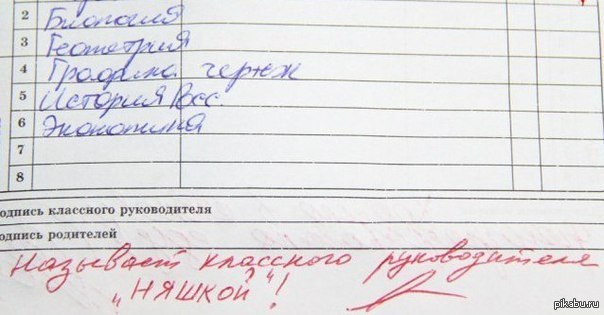 2 Биология
3 Геометрия
4 Графика чертеж
5 История Росс.
6 Экономика
7
8
одпись классного руководителя
одпись родителей
Называет классного руководителя
„НЯШКОЙ“!
pikabu.ru